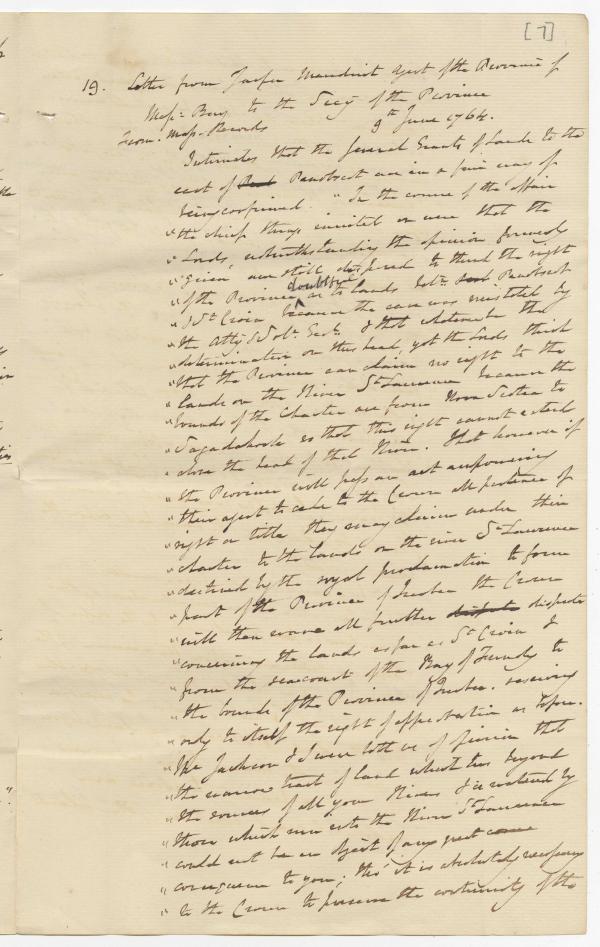 [7]
19. Letter from Jasper Mauduit Agent of the Province of
Massts Bay to the Secy of the Province
From Mass. Records 9th June 1764.
Intimates that the several Grants of Lands to the
east of Penobscot are in a fair way of
being confirmed. "In the course of the affair
" the chief things insisted on were that the
" Lords, notwithstanding the opinion formerly
" given are still disposed to think the right
" of the Province doubtful as to lands betn Penobscot
" & St Croix because the case was mistated by
" the Atty & Solr Genl & that whatever the
" determination on this head, yet the Lords think
" that the Province can claim no right to the
" lands on the River St Laurence because the
" bounds of the Charter are from Nova Scotia to
" Sagadahock so that this right cannot extend
" above the head of that River. That however if
" the Province will pass an act empowering
" their agent to cede to the Crown all pretence of
" right or title they may claim under their
" charter to the lands on the river St Laurence
" destined by the royal proclamation to form
" part of the Province of Quebec the Crown
" will then wave all further dispute dispute
" concerning the lands as far as St Croix &
" from the sea coast of the Bay of Fundy to
" the bounds of the Province of Quebec. reserving
" only to itself the right of approbation as before.
" Mr Jackson & I were both of opinion that
" the narrow tract of land which lies beyond
" the sources of all your Rivers & is watered by
" those which run into the River St Laurence
" could not be an object of any great
" consequence to you; tho' it is absolutely necessary
" to the Crown to preserve the continuity of the